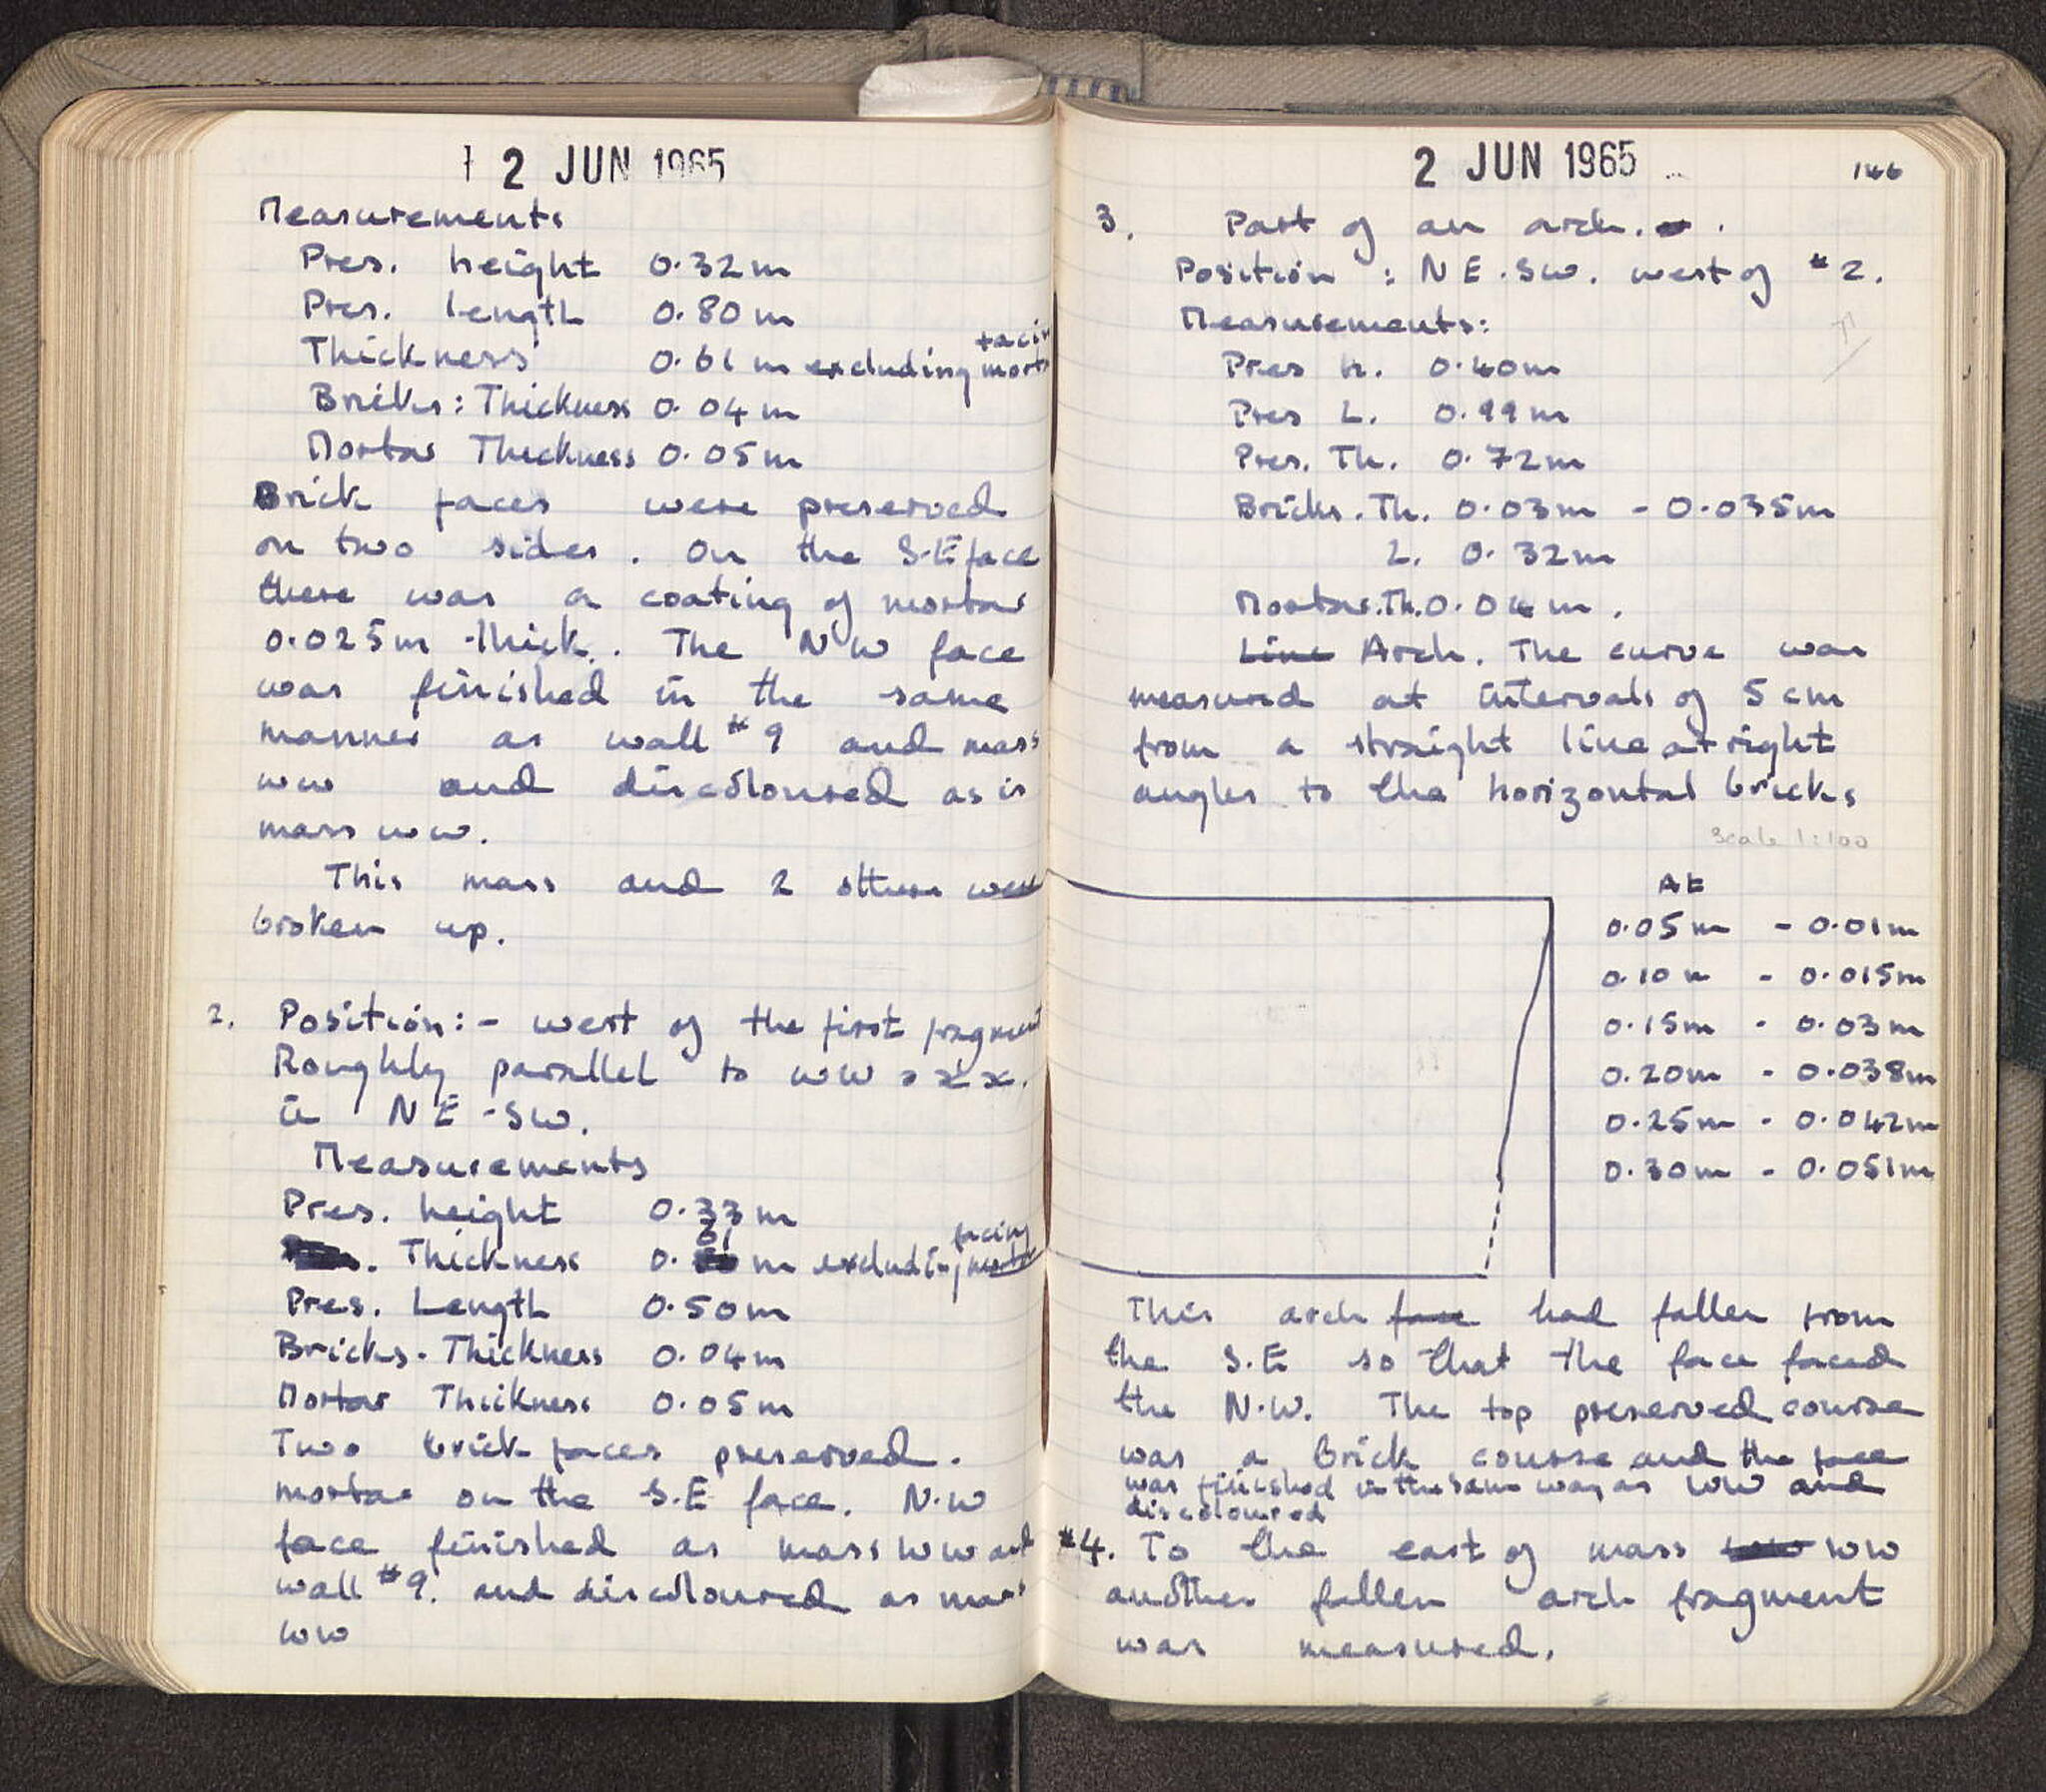 2 JUN 1965
Measurements
Pres. height 0.32m
Pres. length 0.80m
Thickness 0.61m excluding facing mortar
Bricks: Thickness 0.04m
Mortar Thickness 0.05m
Brick faces were preserved
on two sides. On the S.E face
there was a coating of mortar
0.025m thick. The NW face
was finished in the same
manner as wall #9 and mass
WW and discoloured as is
mass WW.
This mass and 2 others were
broken up.
2. Position:- west of the first fragment
Roughly parallel to WW
ie NE-SW.
Measurements
Pres. height 0.33m
Thickness 0.61 m excluding facing mortar
Pres. Length 0.50m
Bricks. Thickness 0.04m
Mortar Thickness 0.05m
Two brick faces preserved.
mortar on the S.E face. N.W
face finished as mass WW and
wall #9. and discoloured as mass
WW
2 JUN 1965 146
3. Part of an arch.
Position : NE.SW. west of #2.
Measurements:
Pres h. 0.40m
Pres L. 0.99m
Pres. Th. 0.72m
Bricks. Th. 0.03m - 0.035m
L. 0.32m
Mortar. Th. 0.04m.
Line Arch. The curve was
measured at intervals of 5cm
from a straight line at right
angles to the horizontal bricks
Scale 1:100
At
0.05m - 0.01m
0.10m - 0.015m
0.15m - 0.03m
0.20m - 0.038m
0.25m - 0.042m
0.30m - 0.051m
This arch face had fallen from
the S.E so that the face faced
the N.W. The top preserved course
was a brick course and the face
was finished in the same way as WW and
discoloured
#4. To the east of mass WW
another fallen arch fragment
was measured.